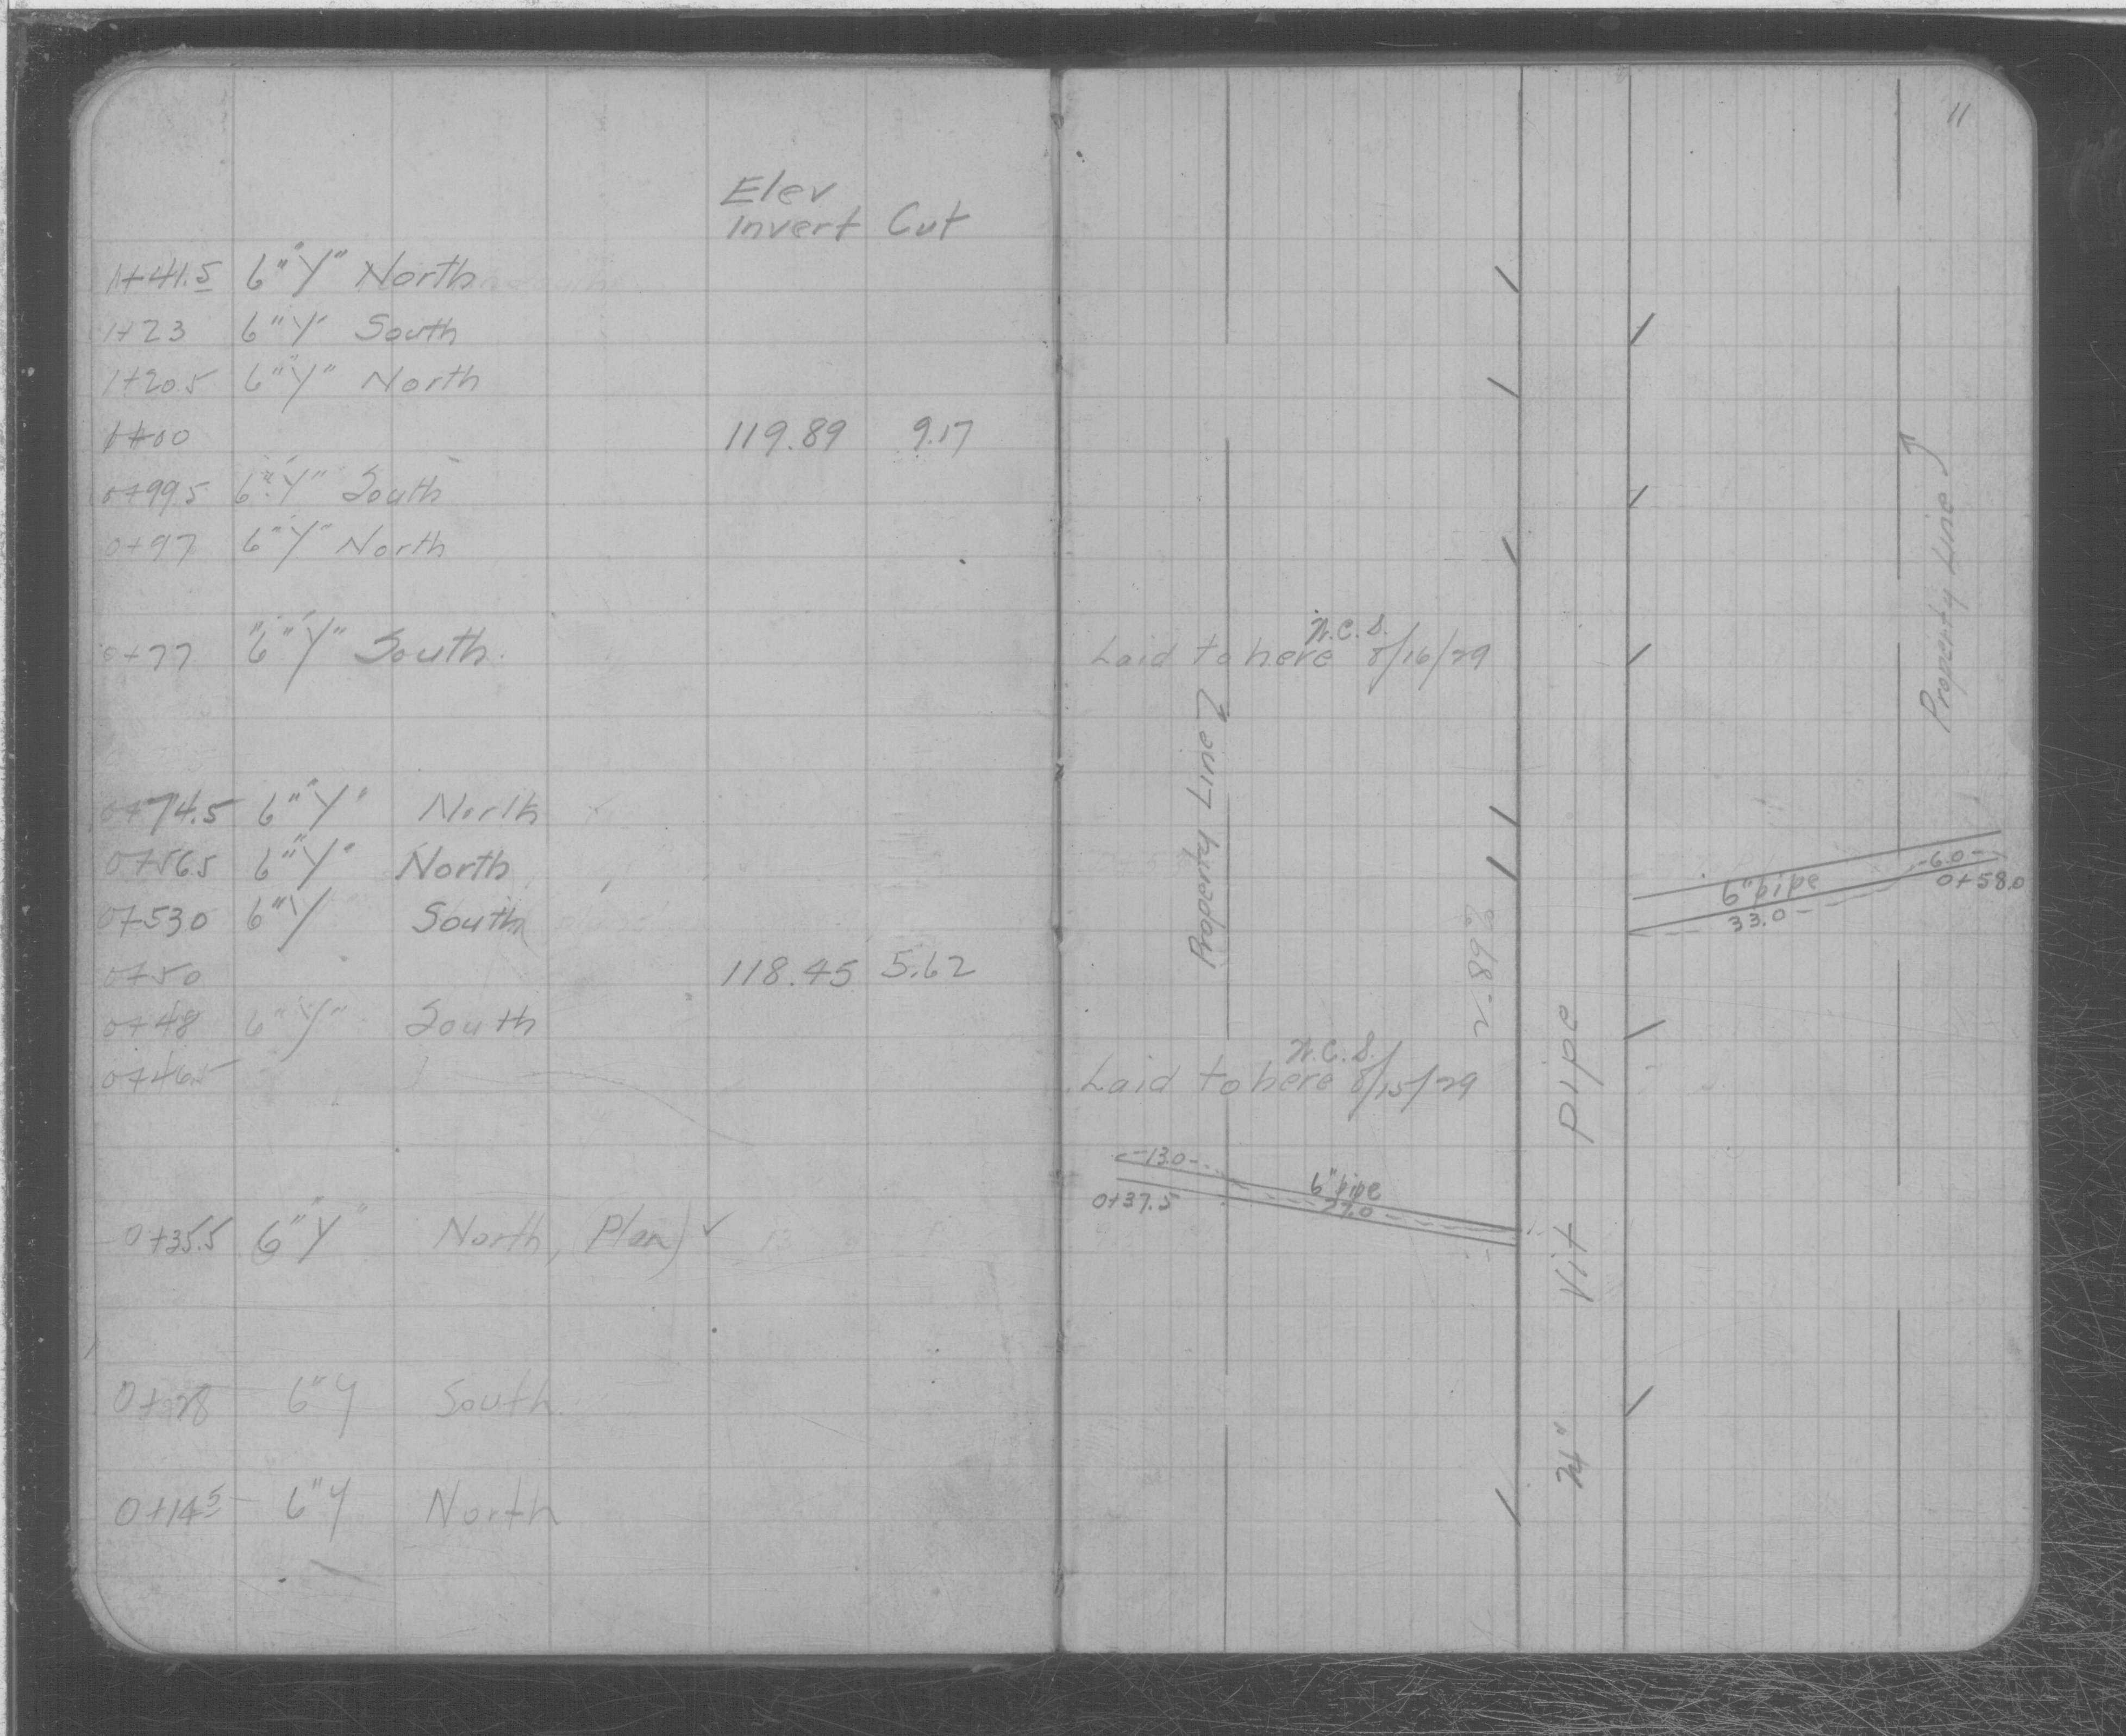 Elev
Invert Cut
1+41.5 6" "Y" North
1+23 6" "Y" South
1+20.5 6" "Y" North
1+00 119.89 9.17
0+99.5 6" "Y" South
0+97 6" "Y" North
0+77 6" "Y" South.
0+74.5 6" "Y" North
0+56.5 6" "Y" North
0+53.0 6" "Y South
0+50 118.45 5.62
0+48 6" "Y" South
0+46.5
0+35.5 6" "Y" North, (Plan) ✓
0+28 6" Y South.
0+14.5 6" Y North
11
Property Line
N.C.S.
Laid to here 8/16/29
Property Line
6.0
6" pipe
0+58.0
33.0
2.89%
N.C.S.
Laid to here 8/15/29
13.0
6" pipe
0+37.5
27.0
Vit pipe